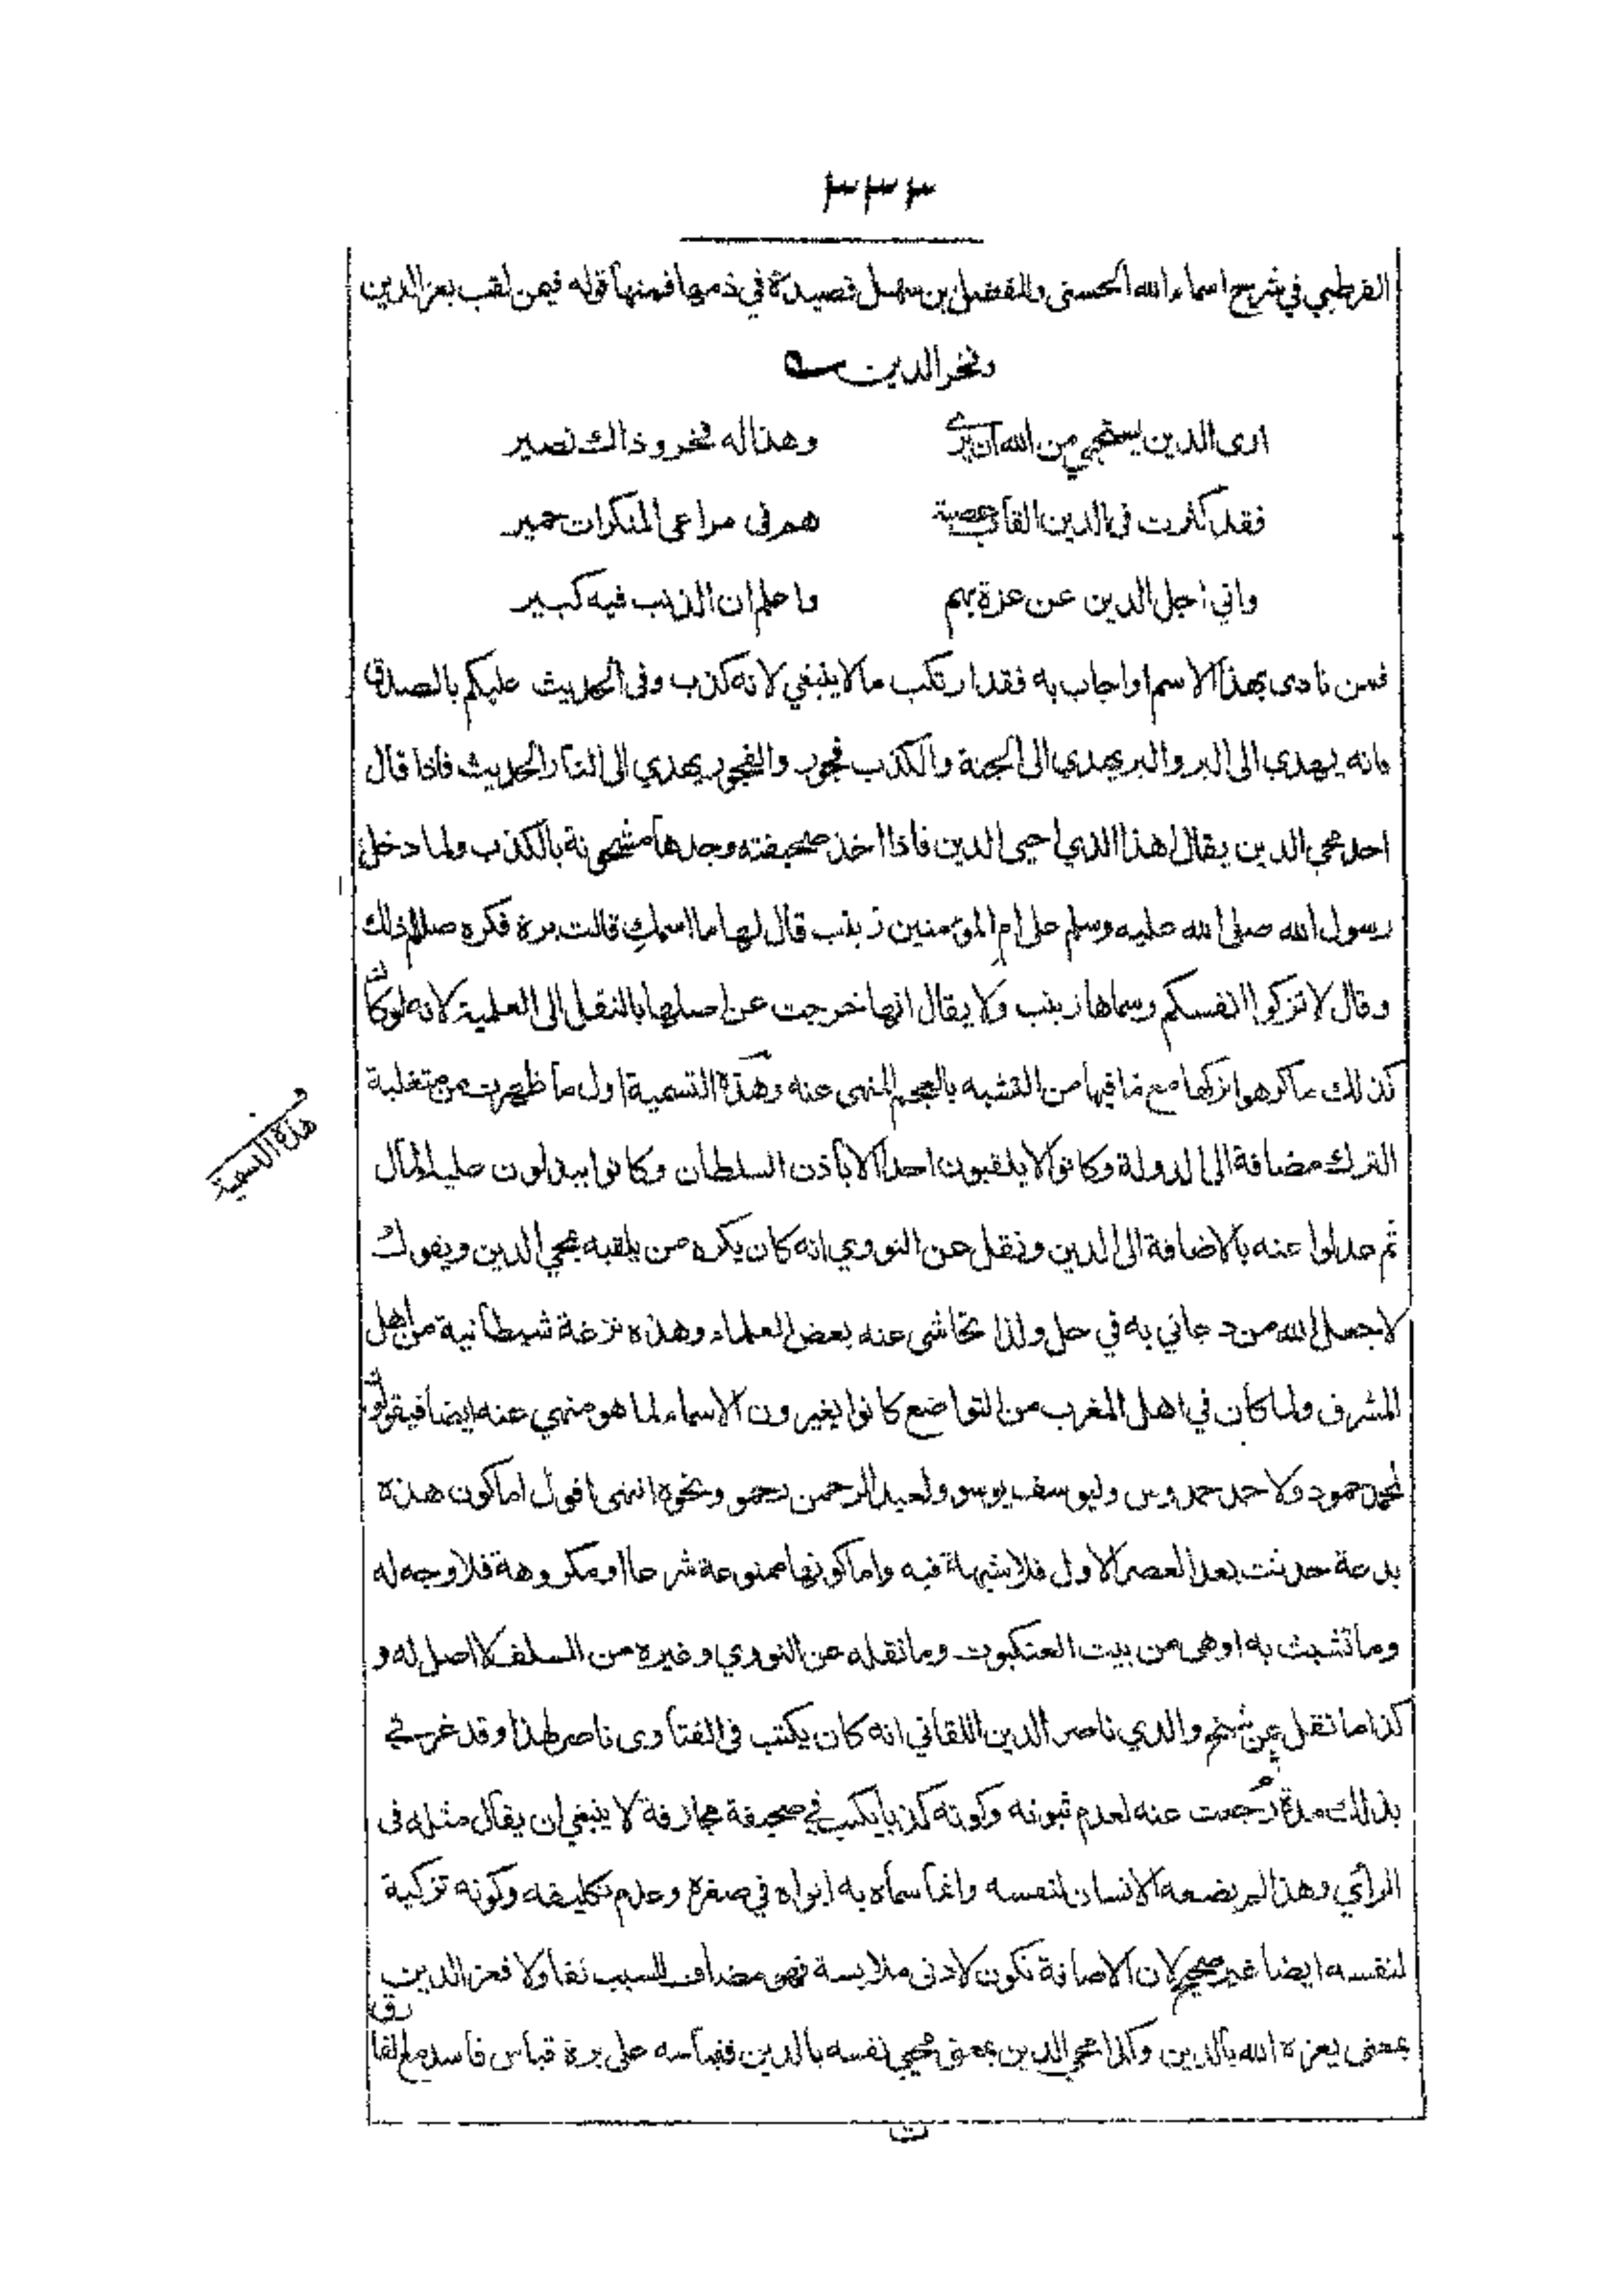 ٣٣٣
القرطبي في شرح اسماء الله الحسنى وللفضل بن سهل قصيدة في ذمها فمنها قوله فيمن لقب بعز الدين
وفخر الدين
ارى الدين يستحيي من الله ان يرى وهذا له فخر وذاك نصير
فقد كثرت في الدين القاب عصبة هم في مراعى المنكرات حمير
واني اجل الدين عن عزة بهم واعلم ان الذنب فيه كبير
فمن نادى بهذا الاسم او اجاب به فقد ارتكب ما لا ينبغي لانه كذب وفى الحديث عليكم بالصدق
فانه يهدى الى البر والبر يهدى الى الجنة والكذب فجور والفجور يهدي الى النار الحديث فاذا قال
احد محي الدين يقال اهذا الذي احيى الدين فاذا اخذ صحيفته وجدها مشحونة بالكذب ولما دخل
رسول الله صلى الله عليه وسلم على ام المؤمنين زينب قال لها ما اسمك قالت برة فكره صللم ذلك
وقال لا تزكوا انفسكم وسماها زينب ولا يقال انها خرجت عن اصلها بالنقل الى العلمية لانه لو كان
كذلك ما كرهوا تركها مع ما فيها من التشبه بالعجم المنهى عنه وهذه التسمية اول ما ظهرت من متغلبة
الترك مضافة الى الدولة وكانوا لا يلقبون احدا الا باذن السلطان وكانوا يبذلون عليه المال
ثم عدلوا عنه بالاضافة الى الدين ونقل عن النووي انه كان يكره من يلقبه بمحي الدين ويقول
لا جعل الله من دعاني به في حل ولذا تحاشى عنه بعض العلماء وهذه نزغة شيطانية من اهل
المشرق ولما كان في اهل المغرب من التواضع كانوا يغيرون الاسماء لما هو منهي عنه ايضا فيقولون
لمحمد حمود ولاحمد حمدوس وليوسف يوسو ولعبد الرحمن رحمو ونحوه انتهى اقول اما كون هذه
بدعة حدثت بعد العصر الاول فلا شبهة فيه واما كونها ممنوعة شرعا او مكروهة فلا وجه له
وما تشبث به اوهى من بيت العنكبوت وما نقله عن النووي وغيره من السلف لا اصل له و
كذا ما نقل عن شيخ والدي ناصر الدين اللقاني انه كان يكتب فى الفتاوى ناصر لهذا وقد غرني
بذلك مدة رجعت عنه لعدم ثبوته وكونه كذبا يكتب في صحيفة مجازفة لا ينبغي ان يقال مثله فى
الرأي وهذا لم يضعه الانسان لنفسه وانما سماه به ابواه في صغره وعدم تكليفه وكونه تزكية
لنفسه ايضا غير صحيح لان الاضافة تكون لادنى ملابسة فهو مضاف للسبب تفاولا فعز الدين
بمعنى يعزه الله بالدين وكذا محي الدين بمعنى محيي نفسه بالدين فقياسه على برة قياس فاسد مع الفارق
و
هذه التسمية